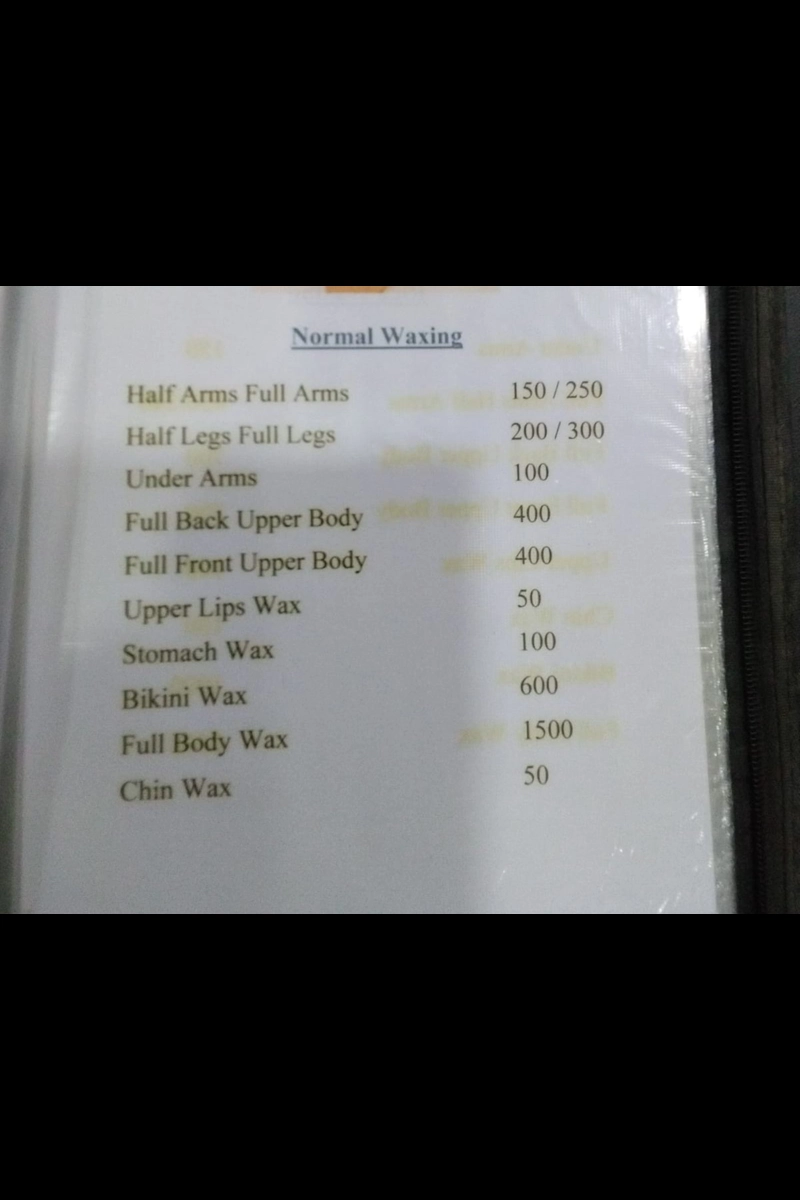 Normal Waxing
Half Arms Full Arms 150 / 250
Half Legs Full Legs 200 / 300
Under Arms 100
Full Back Upper Body 400
Full Front Upper Body 400
Upper Lips Wax 50
Stomach Wax 100
Bikini Wax 600
Full Body Wax 1500
Chin Wax 50